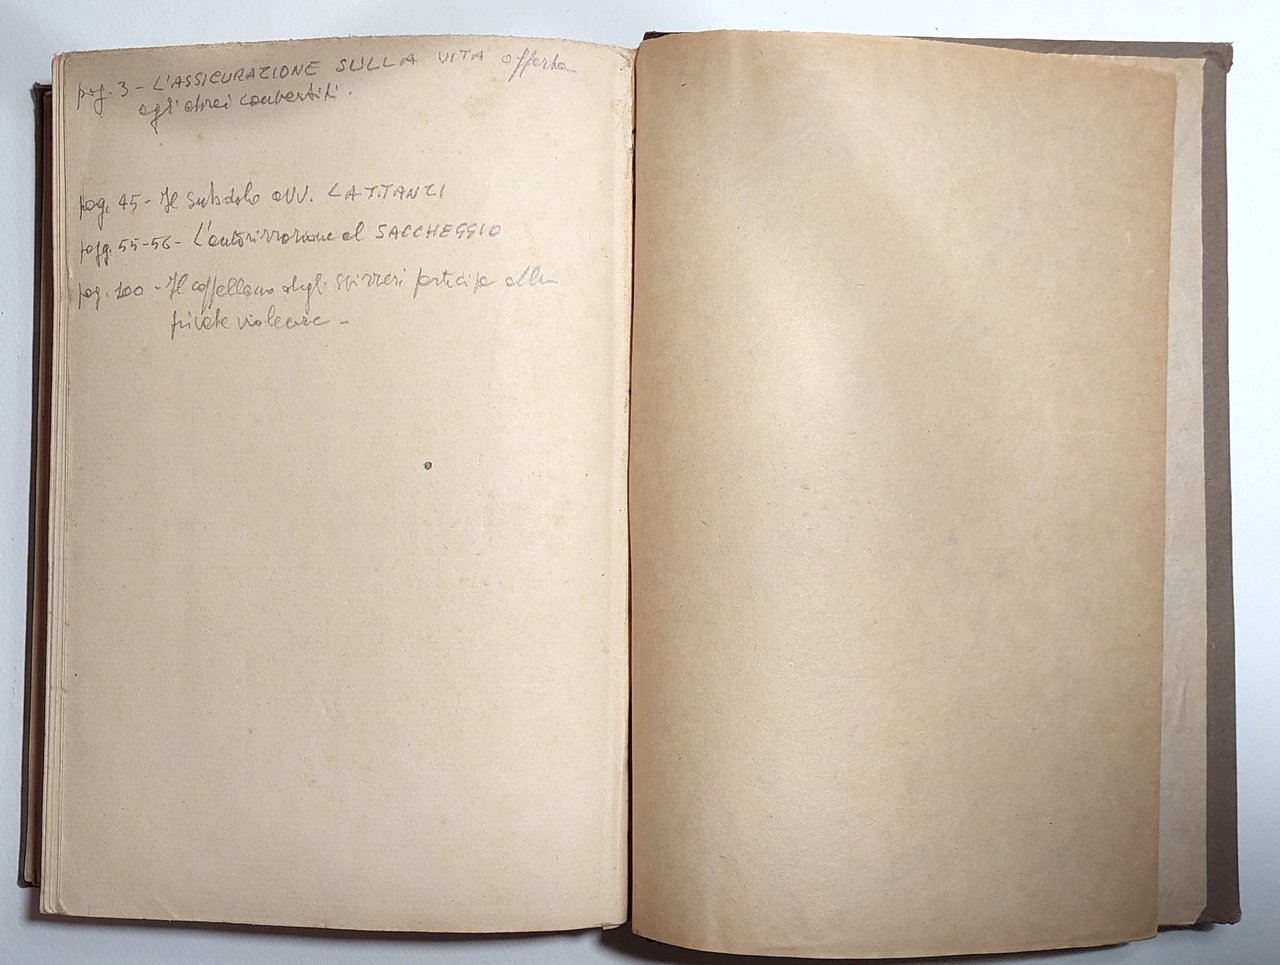 pag. 3 - L'ASSICURAZIONE SULLA VITA offerta
agli ebrei convertiti.
pag. 45 - Il subdolo avv. LATTANZI
pagg. 55-56 - L'autorizzazione al SACCHEGGIO
pag. 100 - Il cappellano degli svizzeri partecipa alle
private violenze -